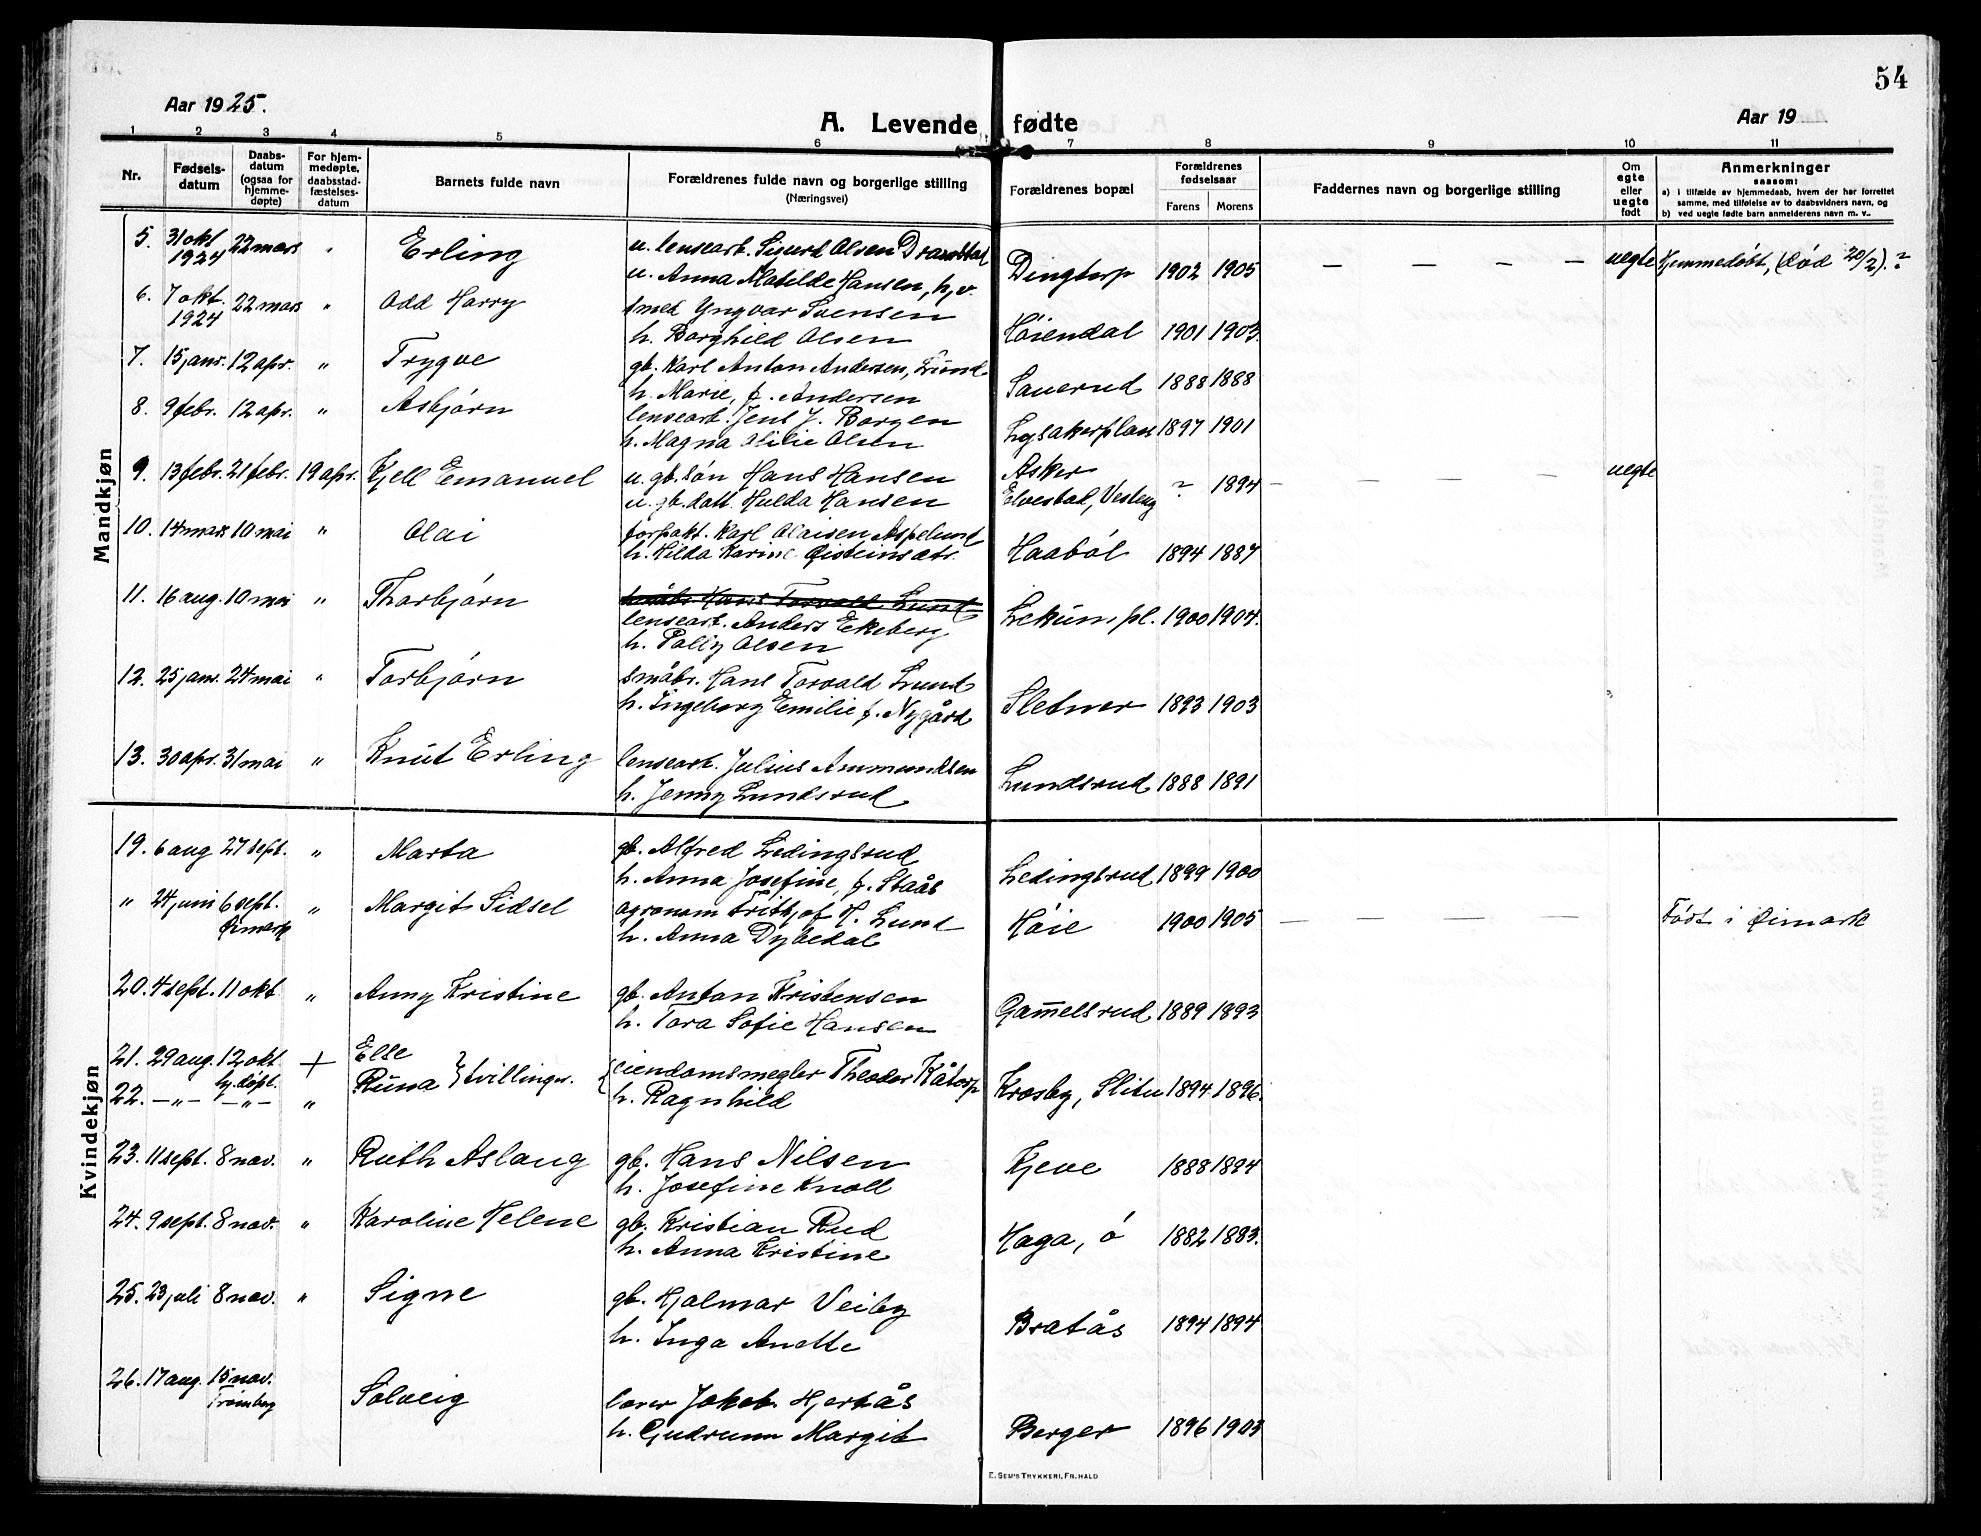 54
Aar 1925.
A. Levende fødte
Aar 19
1 2 3 4 5 6 7 8 9 10 11
Nr.
Fødsels-
datum
Daabs-
datum
(ogsaa for
hjemme-
døpte)
For hjem-
medøpte,
daabsstad-
fæstelses-
datum
Barnets fulde navn
Forældrenes fulde navn og borgerlige stilling
(Næringsvei)
Forældrenes bopæl
Forældrenes
fødselsaar
Farens Morens
Faddernes navn og borgerlige stilling
Om
egte
eller
uegte
født
Anmerkninger
saasom:
a) i tilfælde av hjemmedaab, hvem der har forrettet
samme, med tilføielse av to daabsvidners navn, og
b) ved uegte fødte barn anmelderens navn m. v..
Mandkjøn
5. 31 okt 1924 22 mars " Erling
u. lensearb. Sigurd Olsen
u. Anna Matilde Hansen, hj.v.
Dingtorp 1902 1905 — — — — uegte Hjemmedøbt, (død 20/2).?
6. 7 okt. 1924 22 mars " Odd Harry
smed Yngvar Svensen
h. Borghild Olsen
Høiendal 1901 1903.
7. 15 janr. 12 apr. " Trygve
gb. Karl Anton Andersen, Lund
h. Marie, f. Andersen
Sauerud 1888 1888
8. 9 febr. 12 apr. " Asbjørn
lensearb. Jens J. Borgen
h. Magna Olsen
Lysakerplass 1897 1901
9. 13 febr. 21 febr. 19 apr. Kjell Emanuel
u. gb.søn Hans Hansen
u. gb.datt. Hulda Hansen
Asker
Elvestad, Vesteng ? 1894 — — — — — uegte
10. 14 mars 10 mai " Olai
forpakt. Karl Olaisen Aspelund
h. Hilda Karine Øisteinsætr.
Haabøl 1894 1887
11. 16 aug. 10 mai " Thorbjørn
småbr. Hans Torvald Lund
lensearb. Anders Ekeberg
h. Pally Olsen
Lekum pl. 1900 1904.
12. 25 janr. 24 mai " Torbjørn
småbr. Hans Torvald Lund
h. Ingeborg Emilie f. Nygård
Sletner 1893 1903
13. 30 apr. 31 mai " Knut Erling
lensearb. Julius Ammundsen
h. Jenny Lundsrud
Lundsrud 1888 1891
Kvindekjøn
19. 6 aug 27 sept. " Marta
gb. Alfred Ledingsrud
h. Anna Josefine, f. Staås
Ledingsrud 1899 1900
" 24 juni 6 sept. Øimark " Margit Sidsel
agronom Fritjof H. Lund
h. Anna Dybedal
Høie 1900 1905 — — — — — Født i Øimark
20. 4 sept. 11 okt. " Anny Kristine
gb. Anton Kristensen
h. Tora Sofie Hansen
Gam̅elsrud 1889 1893
21. 29 aug. 12 okt. hj.døpt. + Else
22. — " — — " — " Runa } tvillinger.
{ eiendomsmegler Theodor Kåtorp
h. Ragnhild
Krosby, Slitu 1894 1896.
23. 11 sept. 8 nov. " Ruth Aslaug
gb. Hans Nilsen
h. Josefine Knoll
Kjeve 1888 1894
24. 9 sept. 8 nov. " Karoline Helene
gb. Kristian Rud
h. Anna Kristine
Haga, ø 1882 1883.
25. 23 juli 8 nov. " Signe
gb. Hjalmar Veiby
h. Inga Anette
Bratås 1894 1894
26. 17 aug. 15 nov. Trømborg Solveig
lærer Jakob Hjertås
h. Gudrunn Margit
Berger 1896 1903
E. SEM'S TRYKKERI, FR. HALD